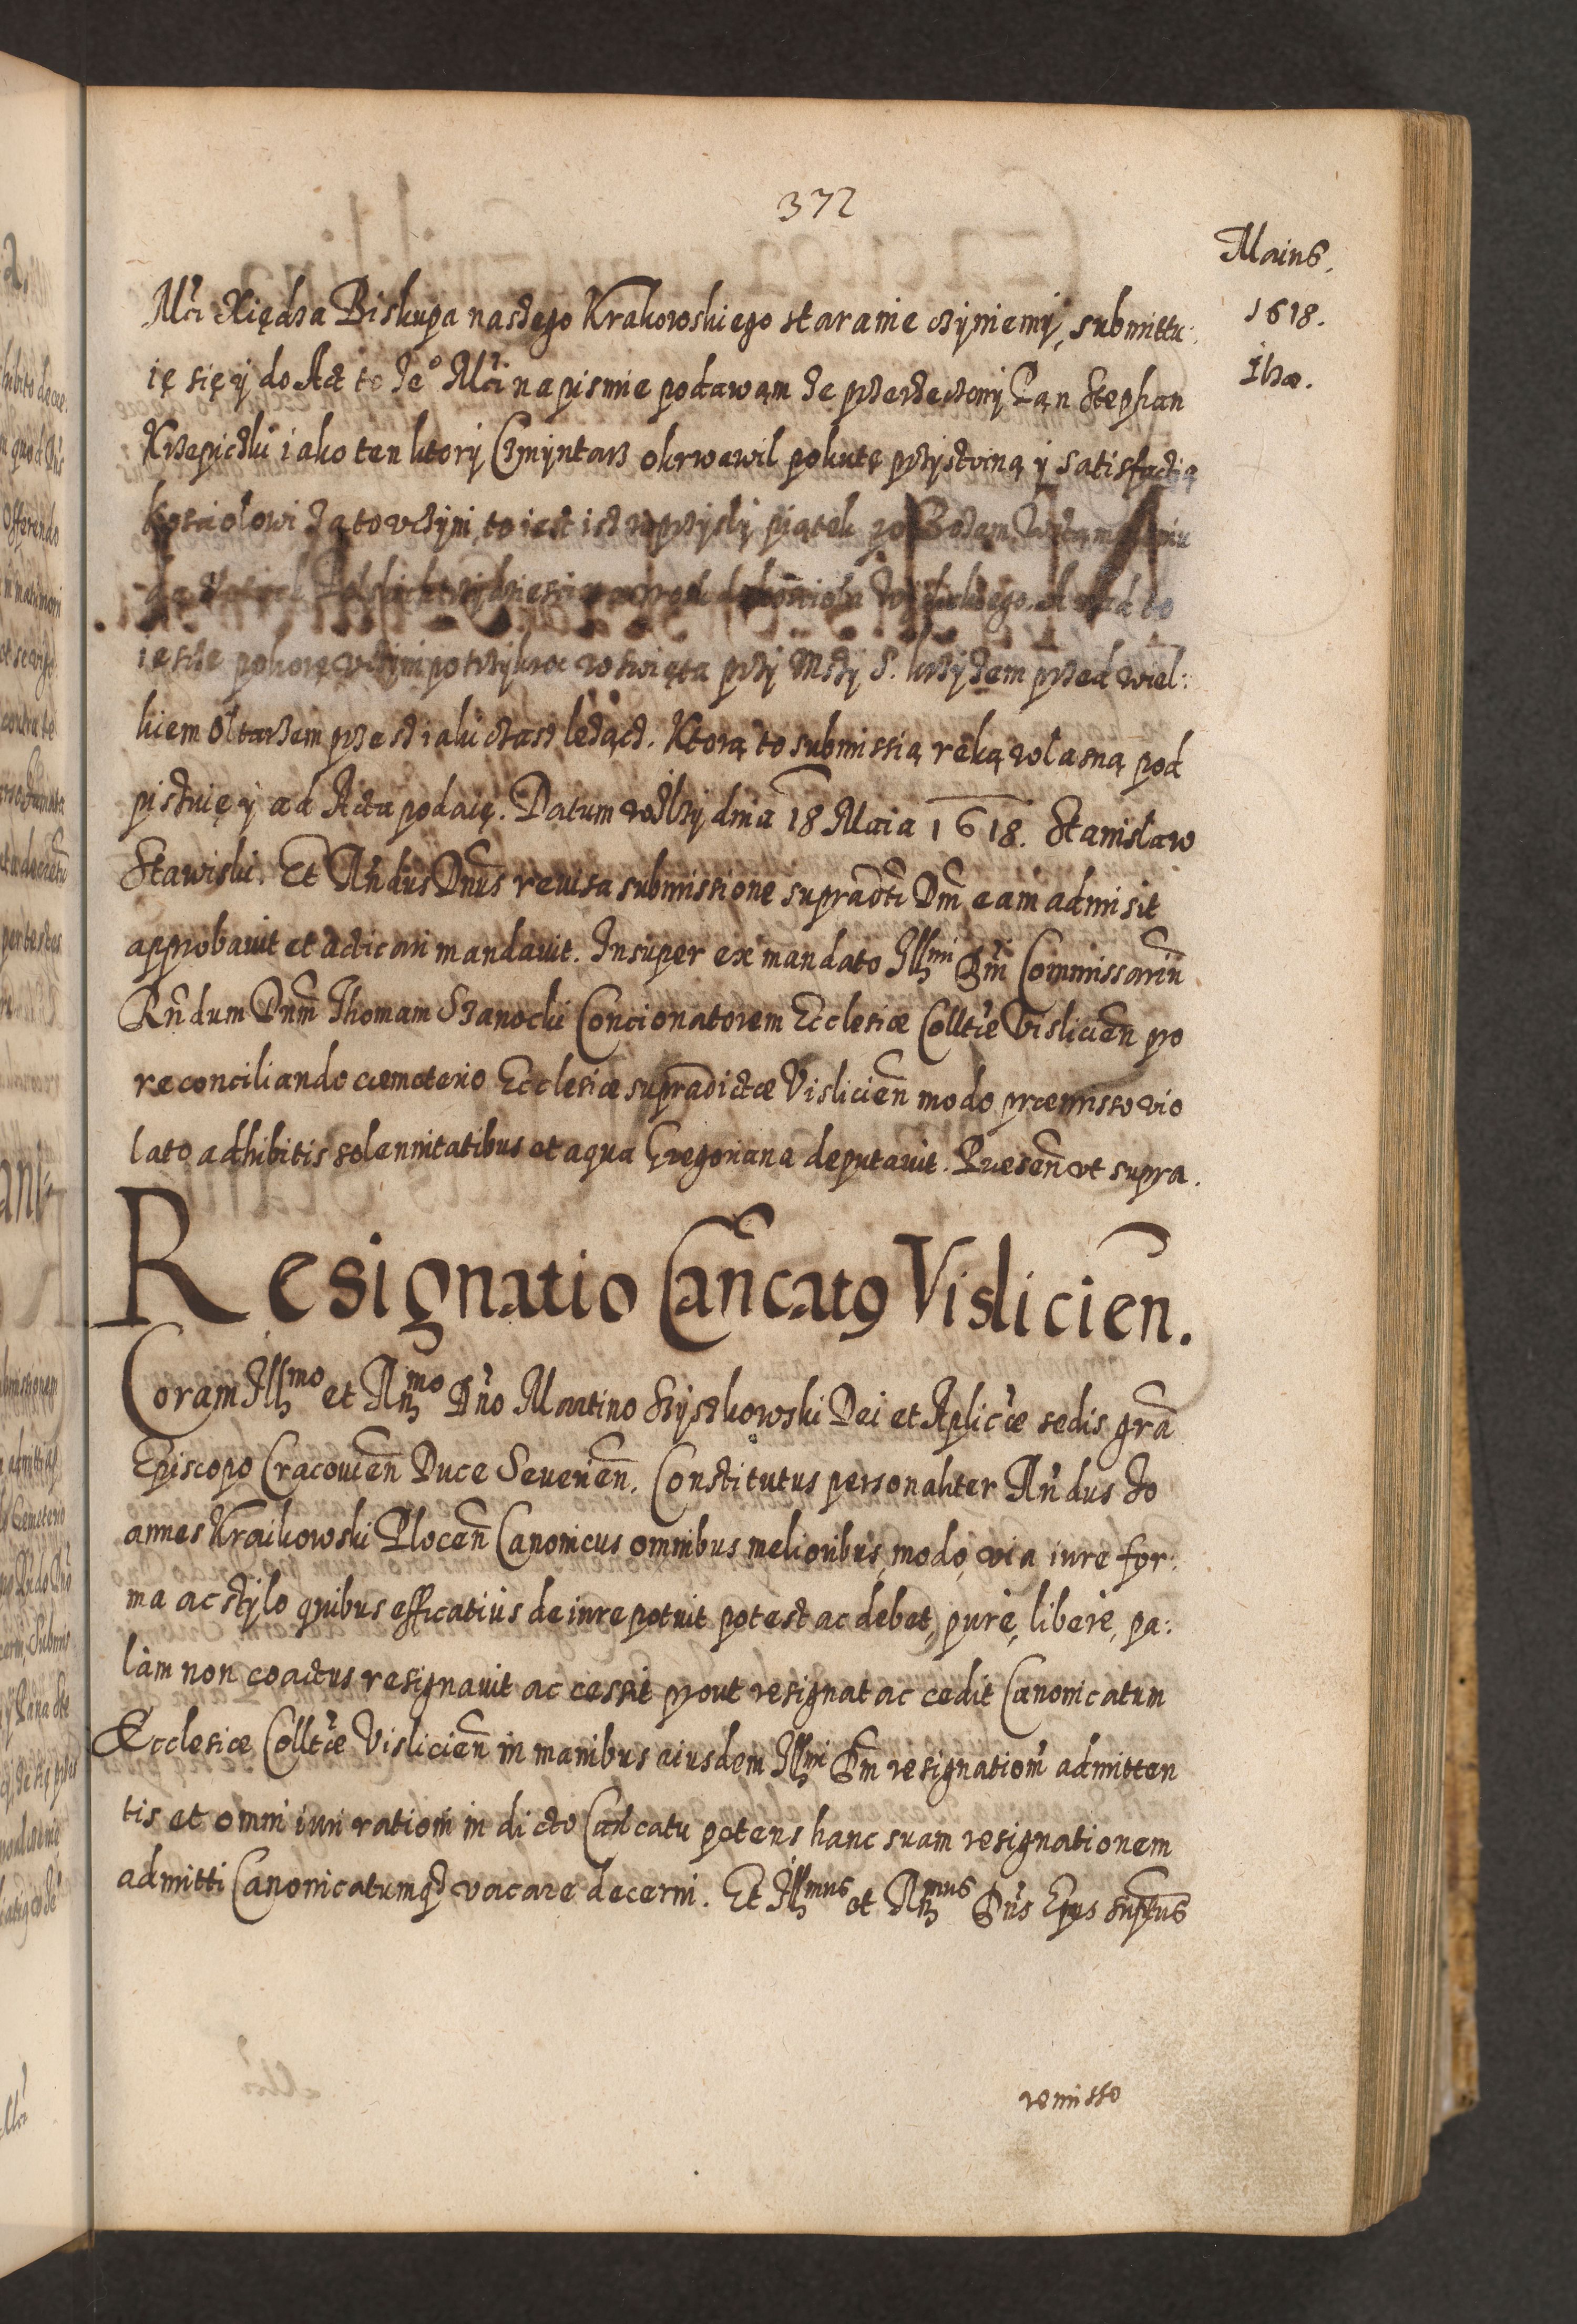 372
Maius.
1618.
Ilza.
Mci Xiędza Biskupa naszego Krakowskiego staranie czyniemy, submittu:
ię się y do Act to Je° Mci na pismie podawam że przerzeczony Pan Stephan
Krzepiczki iako ten ktory Czmyntarz okrwawil pokutę przystoiną y satisfactią
kosciolowi zą to vczyni, to iest isz w przyszły piątek po Bożem
do kosciola nad to
ieszcze pokorę vczyni po trzykroc w swięta przy Mszy S. krzyżem przed wiel:
kiem Oltarzem przesz iaki czasz leżącz. Ktorą to submissią ręką wlasną pod
piszuię y ad Acta podaię. Datum w Ilży dnia 18 Maia 1618. Stanisław
Stawiski. Et Rndus Dnus reuisa submissione supradti Dni eam admisit
approbauit et acticari mandauit. Insuper ex mandato Illmi Dni Commissariu
Rndum Dnm Thomam Szanocki Concionatorem Ecclesiæ Colltæ Vislicien pro
reconciliando cœmeterio Ecclesiæ supradictæ Vislicien modo præmisso vio
lato adhibitis solennitatibus et aqua Gregoriana deputauit. Presen vt supra.
Resignatio Cancatus Vislicien.
Coram Illmo et Rmo Dno Martino Szyszkowski Dei et Aplicæ sedis gra
Episcopo Cracouien Duce Seuerien. Constitutus personaliter Rndus Jo
annes Kraikowski Plocen Canonicus omnibus melioribus, modo, via iure for:
ma ac stylo quibus efficatius de iure potuit potest ac debet, pure, libere, pa:
làm non coactus resignauit ac cessit prout resignat ac cedit Canonicatum
Ecclesiæ Colltæ Vislicien in manibus eiusdem Illmi Dni resignationem admitten
tis et omni iuri rationi in dicto Cancatu potens hanc suam resignationem
admitti Canonicatumq vacare decerni. Et Illmus et Rmus Dns Epus suptus
remisso